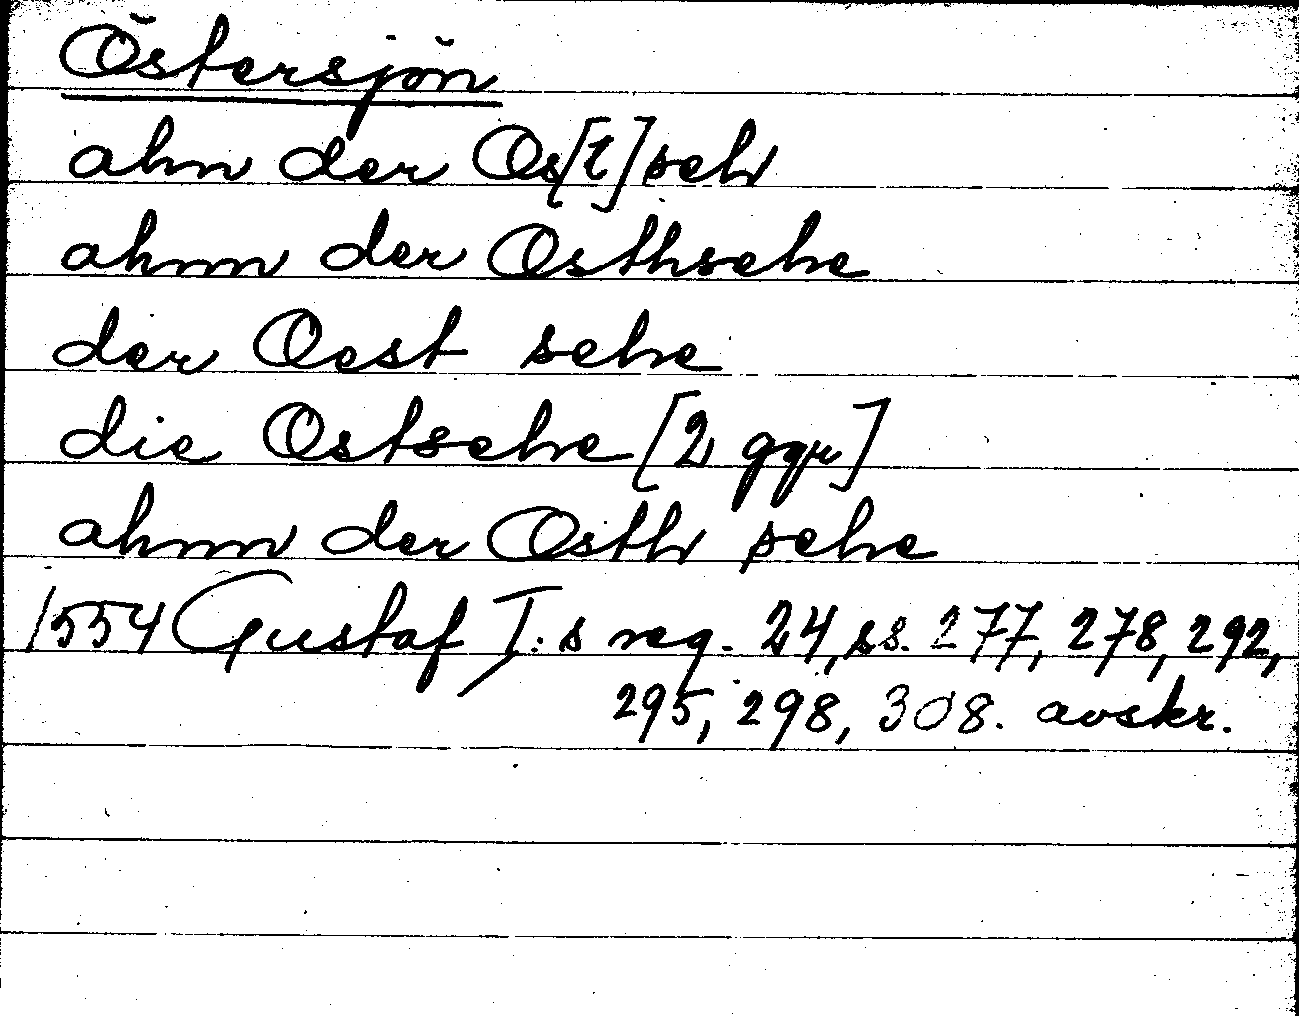 Östersjön
ahn der Os[t]seh
ahnn der Osthsehe
der Oest sehe
die Ostsehe [2 ggr]
ahnn der Osth sehe
1554 Gustaf I:s reg. 24, ss. 277, 278, 292,
295, 298, 308. avskr.